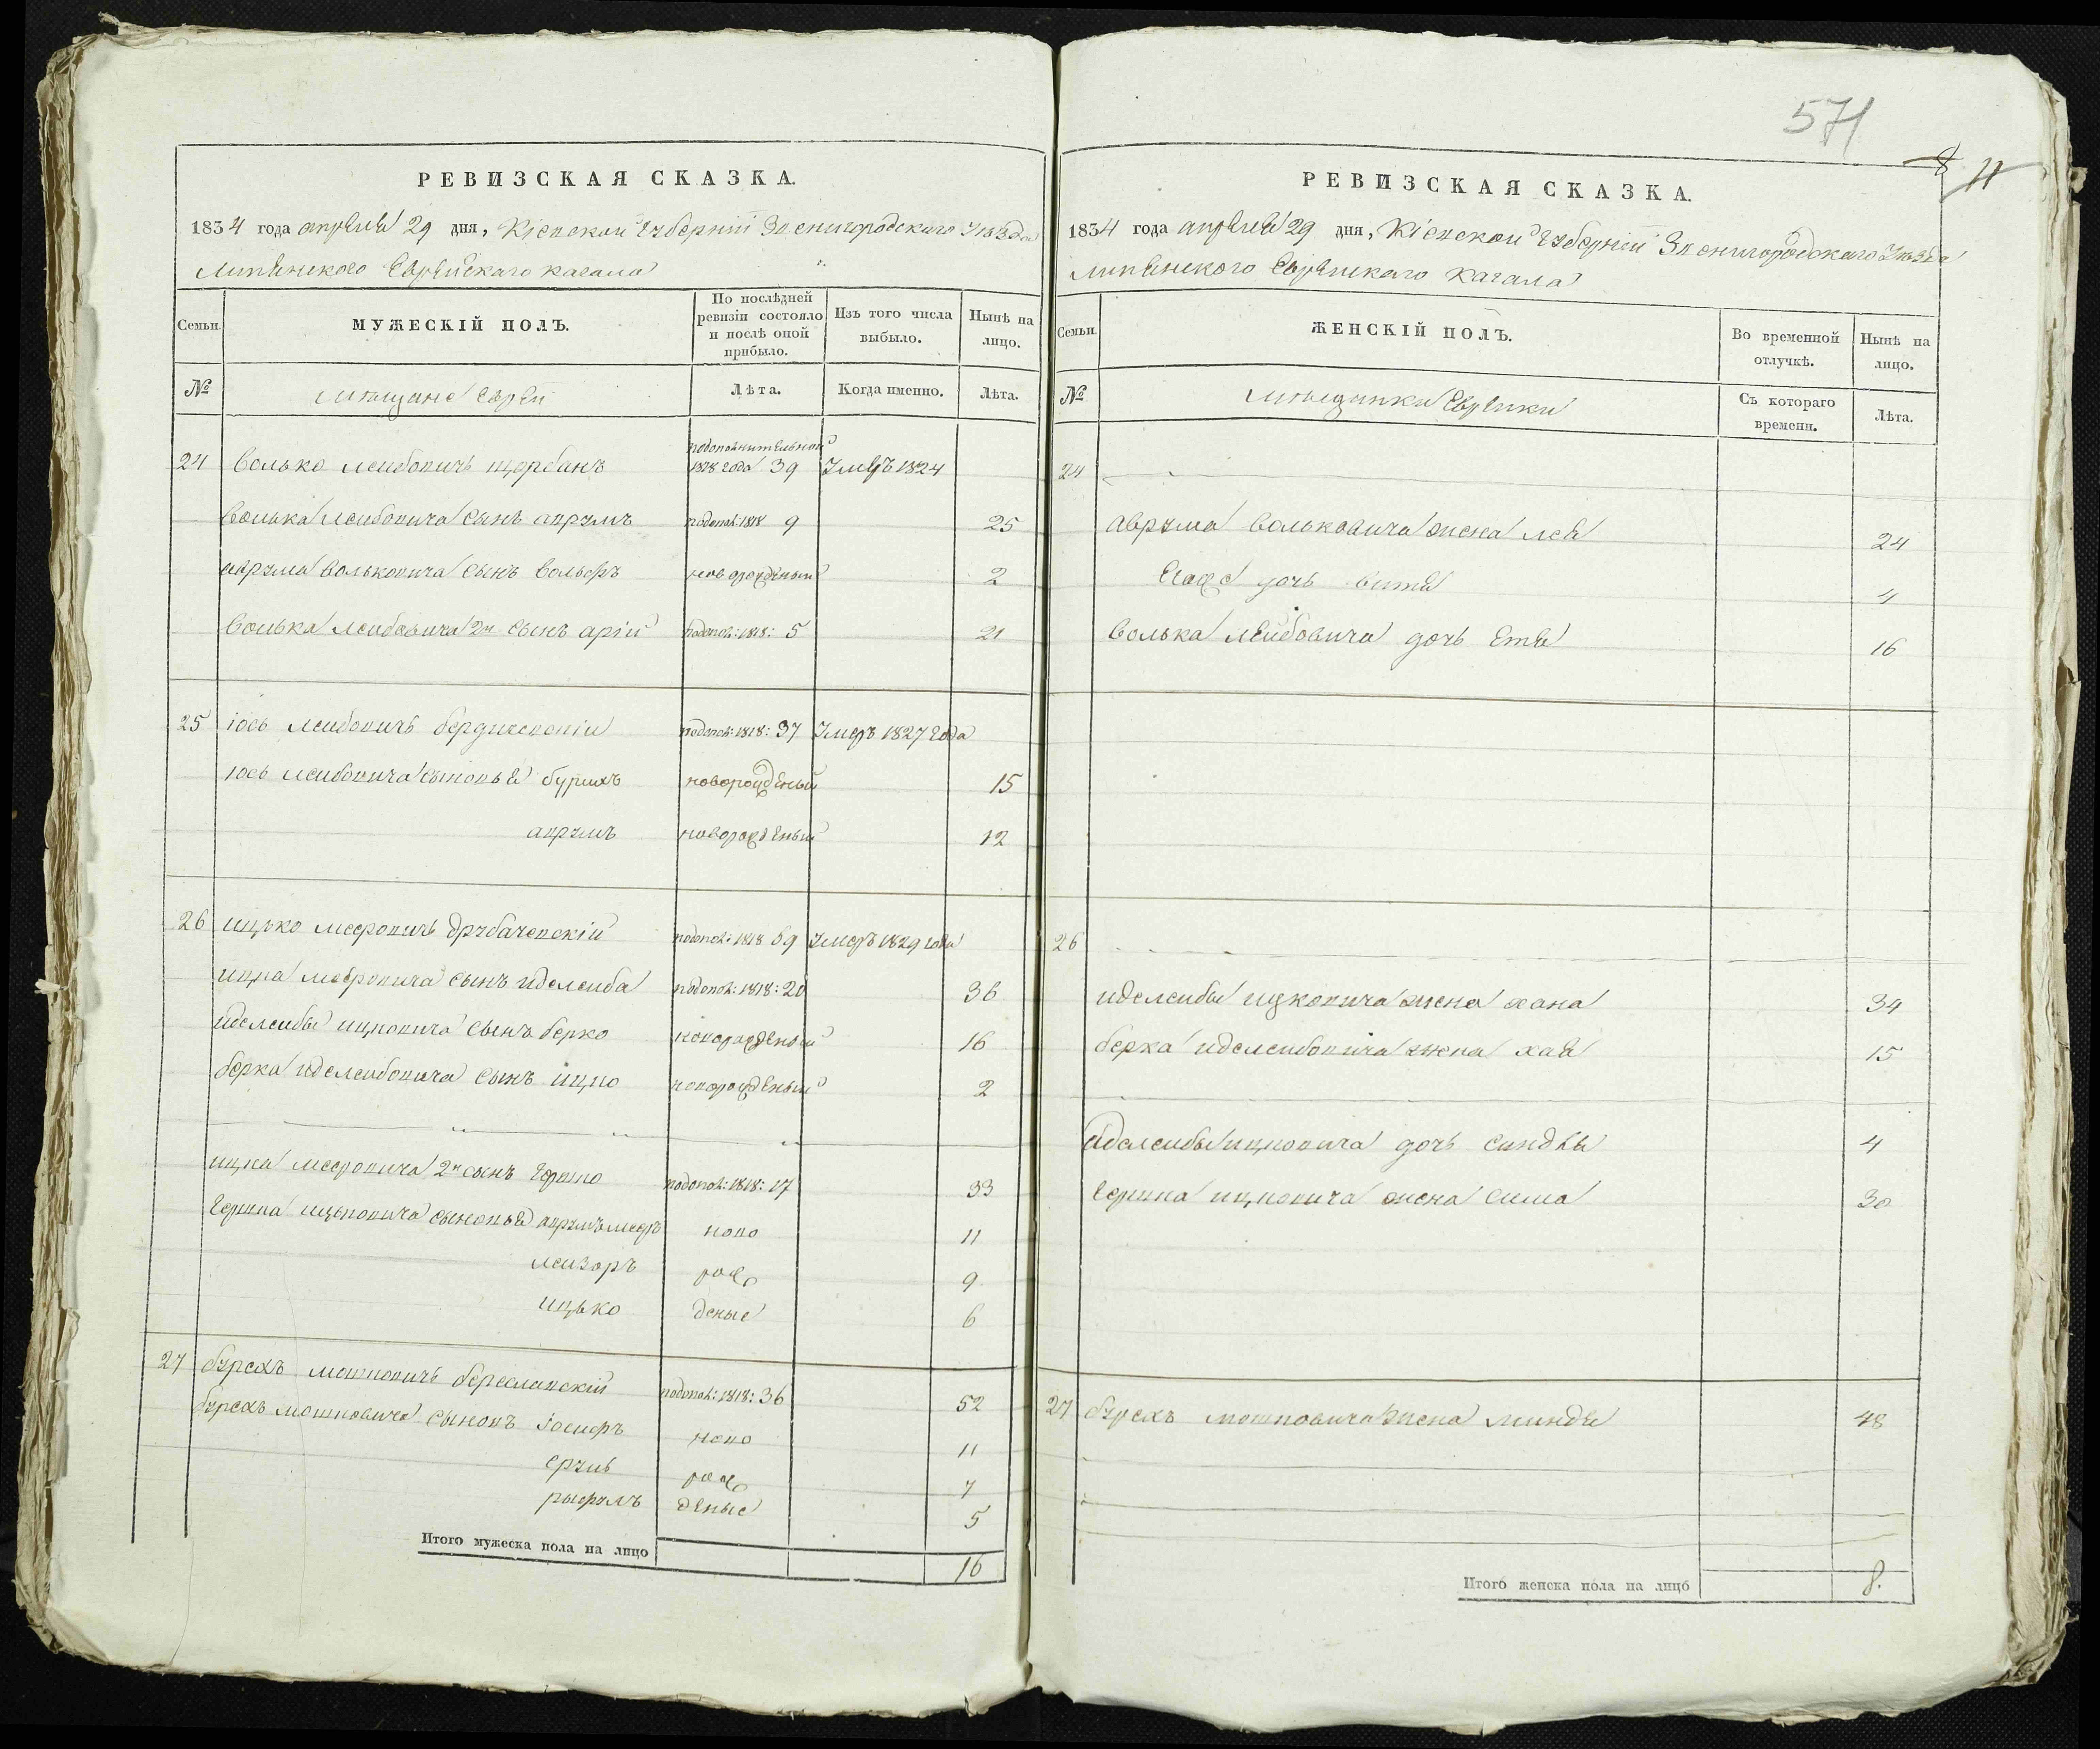 571
8 11
РЕВИЗСКАЯ СКАЗКА.
1834 года апреля 29 дня, Кіевской Губерніи Звенигородскаго Уѣзда
Еврейскаго кагала
Семьи
МУЖЕСКІЙ ПОЛЪ.
По послѣдней ревизіи состояло и послѣ оной прибыло.
Изъ того числа выбыло.
Нынѣ на лицо.
№
мѣщане евреи
Лѣта.
Когда именно.
Лѣта.
24 Волько Лейбовичъ щербанъ подополнительной 1818 года 39 Умеръ 1824
Волька Лейбовича сынъ аврумъ подопол: 1818 9 25
аврума Вольковича сынъ Вольфъ новорожденый 2
Волька Лейбовича 2й сынъ арій подопол: 1818: 5 21
25 іось Лейбовичъ бердичевскій подопол: 1818: 37 Умеръ 1827 года
іось Лейбовича сыновья бурихъ новорожденый 15
аврумъ новорожденый 12
26 ицько мееровичъ подопол: 1818 59 Умеръ 1829 года
ицка мееровича сынъ иделейба подопол: 1818: 20 36
иделейбы ицковича сынъ берко новорожденый 16
берка иделейбовича сынъ ицко новорожденый 2
ицка мееровича 2й сынъ Гершко подопол: 1818: 17 33
Гершка ицьковича сыновья аврумъ мееръ ново 11
лейзоръ рож 9
ицько деные 6
27 бурехъ мошковичъ береславскій подопол: 1818: 36 52
бурехъ мошковича сыновъ іосифъ ново 11
сруль рож 7
рыфулъ деные 5
Итого мужеска пола на лицо 16
РЕВИЗСКАЯ СКАЗКА.
1834 года апреля 29 дня, Кіевской Губерніи Звенигородскаго Уѣзда
Еврейскаго Кагала
Семьи
ЖЕНСКІЙ ПОЛЪ.
Во временной отлучкѣ.
Нынѣ на лицо.
№
мѣщанки Еврейки
Съ котораго времени.
Лѣта.
24
аврума Вольковича жена лея 24
Егоже дочь витя 4
Волька Лейбовича дочь Етя 16
26
иделейбы ицковича жена хана 34
берка иделейбовича жена хая 15
иделейбы ицковича дочь 4
Гершка ицковича жена сима 30
27 бурехъ мошковича жена миндя 48
Итого женска пола на лицо 8.